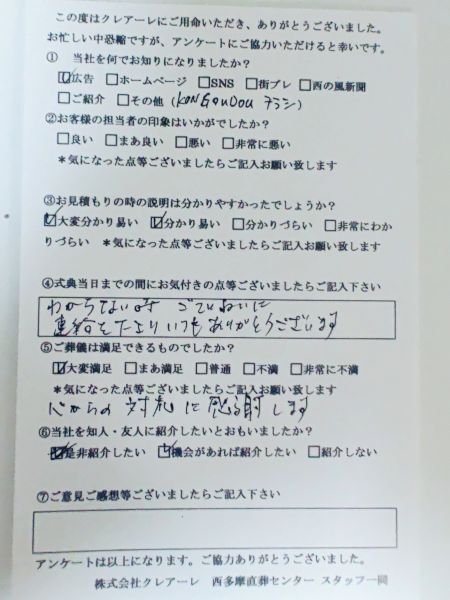 この度はクレアーレにご用命いただき、ありがとうございました。
お忙しい中恐縮ですが、アンケートにご協力いただけると幸いです。
① 当社を何でお知りになりましたか？
☑広告 □ホームページ □SNS □街プレ □西の風新聞
□ご紹介 □その他（KONGOUDOU チラシ）
②お客様の担当者の印象はいかがでしたか？
□良い □まあ良い □悪い □非常に悪い
＊気になった点等ございましたらご記入お願い致します
③お見積もりの時の説明は分かりやすかったでしょうか？
☑大変分かり易い ☑分かり易い □分かりづらい □非常にわか
りづらい ＊気になった点等ございましたらご記入お願い致します
④式典当日までの間にお気付きの点等ございましたらご記入下さい
わからない時 ごていねいに
連絡をたより いつもありがとうございます
⑤ご葬儀は満足できるものでしたか？
☑大変満足 □まあ満足 □普通 □不満 □非常に不満
＊気になった点等ございましたらご記入お願い致します
心からの対礼に感謝します
⑥当社を知人・友人に紹介したいとおもいましたか？
☑是非紹介したい ☑機会があれば紹介したい □紹介しない
⑦ご意見ご感想等ございましたらご記入下さい
アンケートは以上になります。ご協力ありがとうございました。
株式会社クレアーレ 西多摩直葬センター スタッフ一同